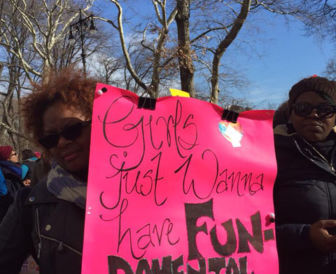 Girls
just Wanna
have FUN:
DAMENTAL